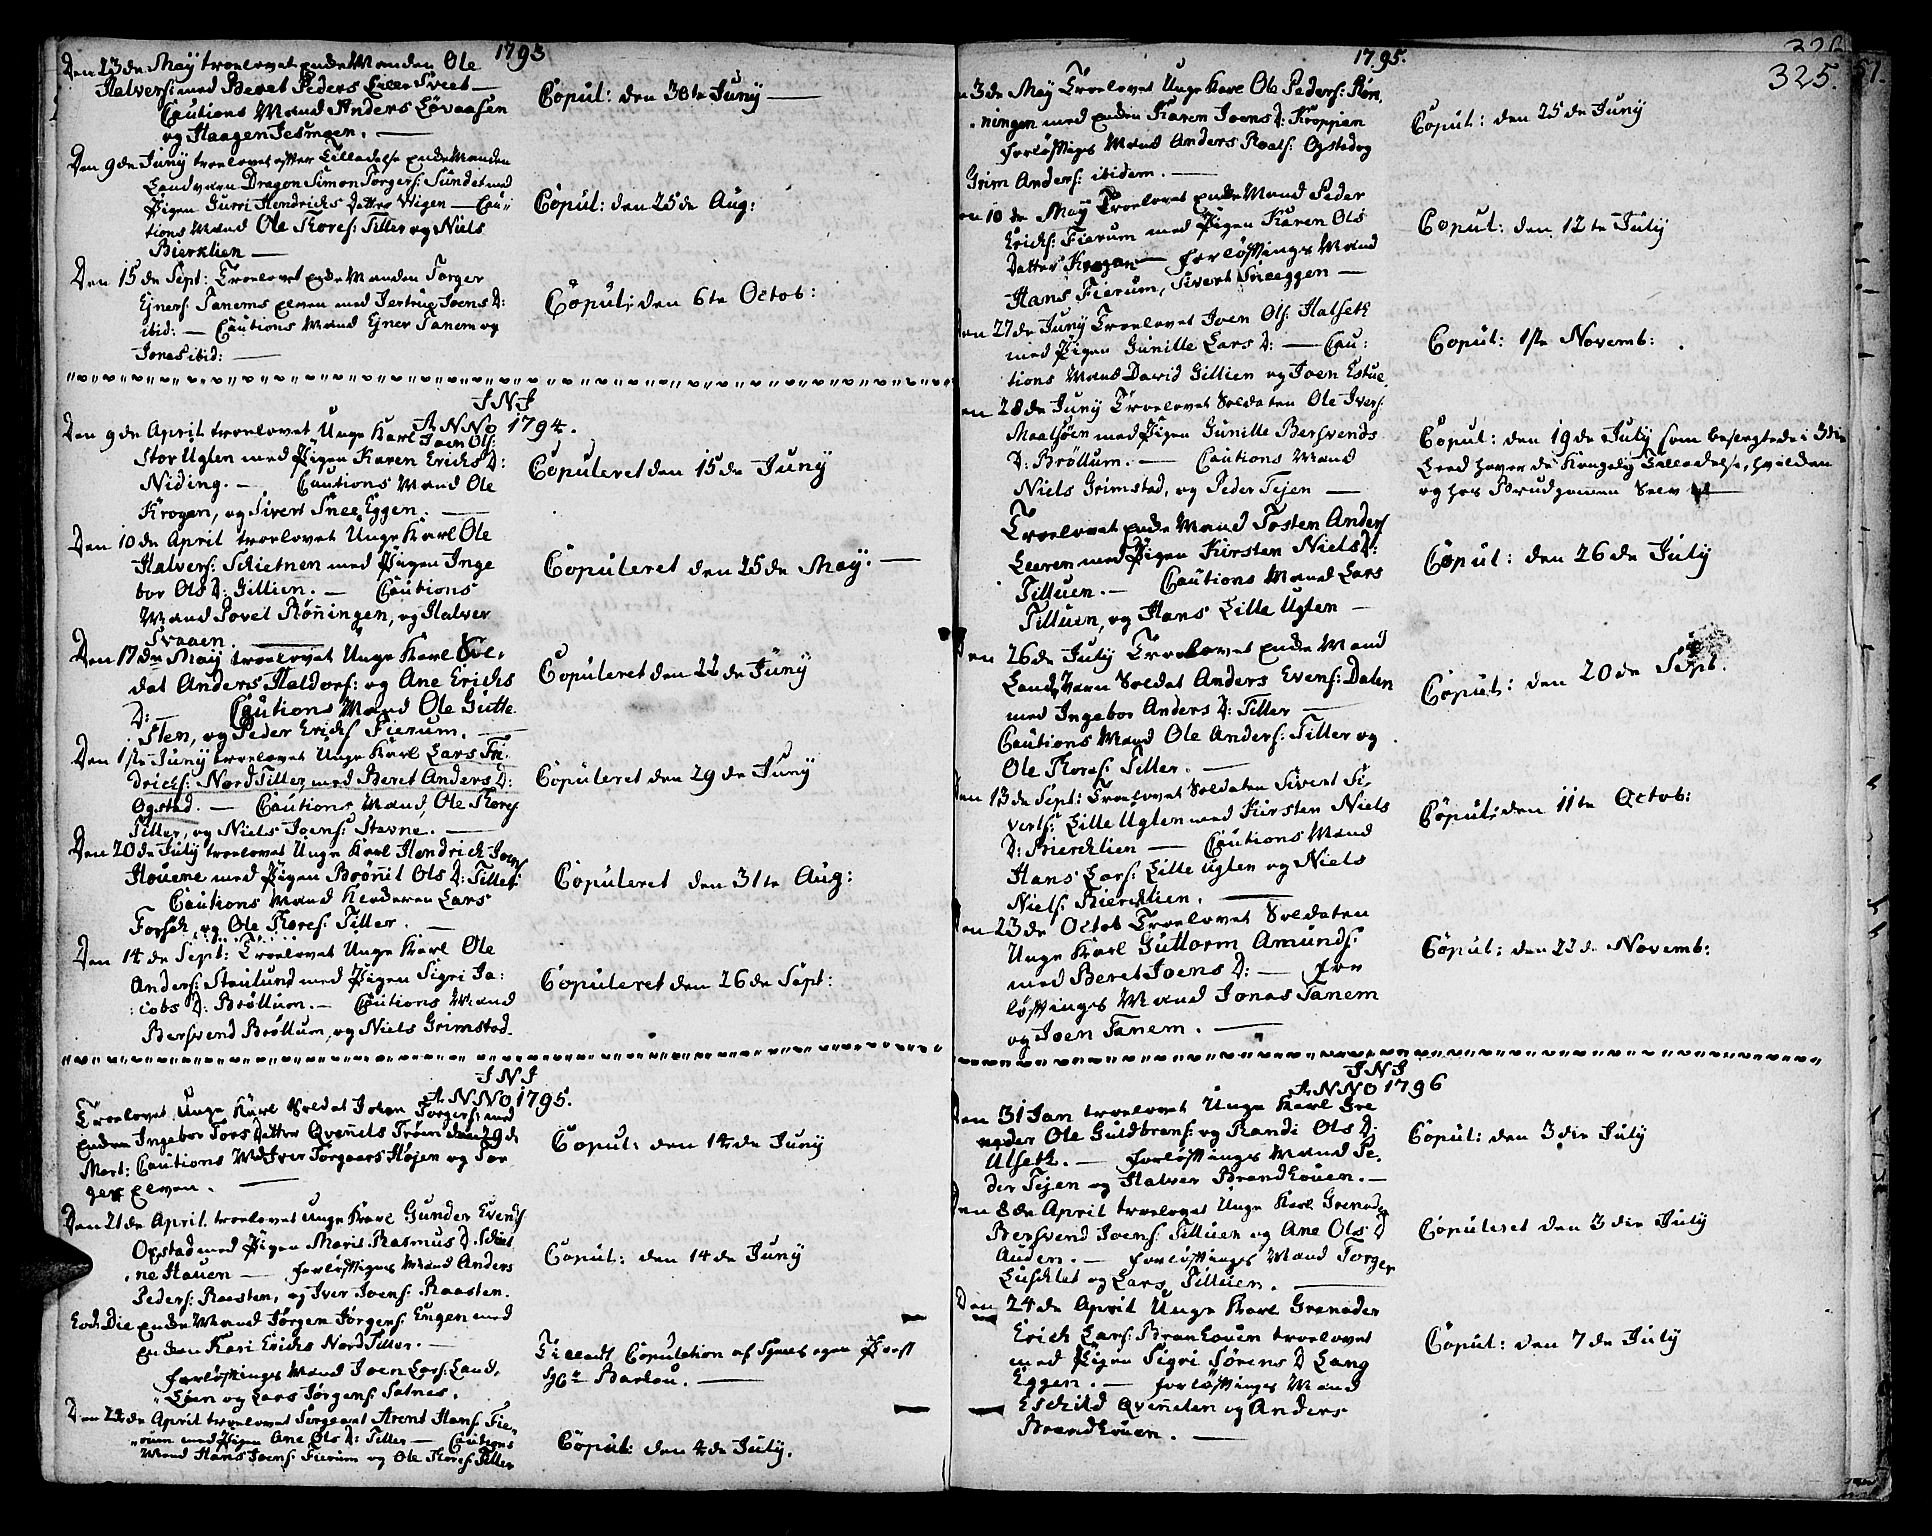 1793
Den 23de Maÿ troelovet EnckeManden Ole
Halvers: med Beret Peders Lille Sveet —
Cautions Mand Anders Løvaasen
og Haagen Jesmoen. —
Copul: den 30te Junÿ —
Den 9de Junÿ troelovet efter Tilladelse EnckeManden
Landværn Dragon Simon Torgers: Sundet med
Pigen Gurri Hendrichs Datter Wigen — Cau:
tions Mand Ole Thores: Tiller og Niels
Bierklien —
Copul: den 25de Aug:
Den 15de Sept: Troelovet EnckeManden Torger
Ejners: Tanems Elven med Jertrug Joens D:
ibid: — Cautions Mand Ejner Tanem og
Jonas ibid: —
Copul: den 6te Octob:
INI
ANNO 1794.
Den 9de April troelovet Unge Karl Joen Ols:
Stor Uglen med Pigen Karen Erichs D:
Niding. — Cautions Mand Ole
Krogen, og Sivert SneeEggen. —
Copuleret den 15de Junÿ
Den 10de April troelovet Unge Karl Ole
Halvers: Schietnen med Pigen Inge
bor Ols D: Gillien. — Cautions
Mand Povel Røningen, og Halver
Svaaen. —
Copuleret den 25de Maÿ. —
Den 17de Maÿ troelovet Unge Karl Sol:
dat Anders Haldors: og Ane Erichs
D: — Cautions Mand Ole Gutte
Sten, og Peder Erichs: Fierum. —
Copuleret den 22de Junÿ
Den 1ste Junÿ troelovet Unge Karl Lars Fri:
drichs: NordTiller, med Beret Anders D:
Ogstad. — Cautions Mand, Ole Thores:
Tiller, og Niels Joens: Stavne. —
Copuleret den 29de Junÿ
Den 20de Julÿ troelovet Unge Karl Hendrich Joens:
Houene med Pigen Brønil Ols D: Tiller
Cautions Mand Lars
Forseth, og Ole Thores: Tiller. —
Copuleret den 31te Aug:
Den 14de Sept: Troelovet Unge Karl Ole
Anders: Stenlund med Pigen Sigri Ja:
:cobs D: Brøttum. — Cautions Mand
Bersvend Brøttum, og Niels Grimstad.
Copuleret den 26de Sept:
INI
ANNO 1795.
Troelovet Unge Karl Soldat Johan Torgers: med
Encken Ingebor Tors Datter Qvenilds Trøen den 29de
Mart: Cautions Md Iver Torgaars Højen og Tor
ger Elven. —
Copul: den 14de Junÿ
Den 21de April troelovet Unge Karl Gunder Evens:
Ogstad med Pigen Marit Rasmus D. Schiet
:ne Hauen — forløftiges Mand Anders
Peders: Raasten, og Iver Joens: Raasten.
Copul: den 14de Junÿ
Eod: Die EnckeMand Jørgen Jørgens: Engen med
Encken Kari Erichs NordTiller. —
forløftinges Mand Joen Lars: Land,
Løen og Lars Jørgens: Satnes.
Tilladt Copulation af Egnes egen Præst
Hr Barhou. —
Den 22de April troelovet Sergeant Arent Hans: Fie:
:rum med Pigen Ane Ols D: Tiller — Cautions
Mand Hans Joens: Fierum og Ole Thores: Tiller
Copul: den 4de Julÿ.
1795.
325.
51.
3de Maÿ Troelovet Unge Karl Ole Peders: Røn,
:ningen med Encken Karen Joens D: Kroppen
forløftiges Mand Anders Roals: Ogstad og
Grim Anders: ibidem. —
Copul: den 25de Junÿ
en 10de Maÿ Troelovet EnckeMand Peder
Erichs: Fierum med Pigen Karen Ols
Datter Krogan — forløftinges Mand
Hans Fierum, Sivert Sneeggen —
Copul: den 12te Julÿ
en 27de Junÿ Troelovet Joen Ols: Halseth
med Pigen Gunille Lars D: — Cau:
tions Mand David Gillien og Joen Estue
Copul: 1ste Novemb:
en 28de Junÿ Troelovet Soldaten Ole Ivers:
Maalsøen med Pigen Gunille Bersvends
D: Brøttum. — Cautions Mand
Niels Grimstad, og Peder Tejen —
Copul: den 19de Julÿ som besvogtede i 3die
Leed haver de Kongelig Tilladelse, hvilken
og hos Brudgomen Selv —
Troelovet Encke Mand Tosten Anders:
Leeren med Pigen Kirsten Niels D:
Tilluen. — Cautions Mand Lars
Tilluen, og Hans Lille Uglen —
Copul: den 26de Julÿ
Den 26de Julÿ Troelovet Encke Mand
Landværn Soldat Anders Evens: Dalen
med Ingebor Anders D: Tiller —
Cautions Mand Ole Anders: Tiller og
Ole Thores: Tiller. —
Copul: den 20de Sept.
Den 13de Sept: Troelovet Soldaten Sivert Si:
verts: Lille Uglen med Kirsten Niels
D: Bierchlien — Cautions Mand
Hans Lars: Lille Uglen og Niels
Niels: Bierchlien. —
Copul: den 11te Octob:
Den 23de Octob Troelovet Soldaten
Unge Karl Guttorm Amunds:
med Beret Joens D: — for
løftinges Mand Jonas Tanem
og Joen Tanem. —
Copul: den 22de Novemb:
INI
ANNO 1796
Den 31 Jan troelovet Unge Karl Gre
nader Ole Guldbrans: og Randi Ols D:
Ulseth. — forløftinges Mand Pe:
der Tejen og Halver Brandhouen. —
Copul: den 3die Julÿ
Den 8de April troelovet Unge Karl Grenader
Bersvend Joens: Tilluen og Ane Ols D
Auden. — forløftinges Mand Torger
Luschlet og Lars Tilluen. —
Copuleret den 3die Julÿ
Den 24de April Unge Karl Grenader
Erich Lars: Branhouen troelovet
med Pigen Sigri Sørens D Lang
Eggen. — forløftinges Mand
Eschild Qvenelen og Anders
Brandhouen. —
Copul: den 7de Julÿ